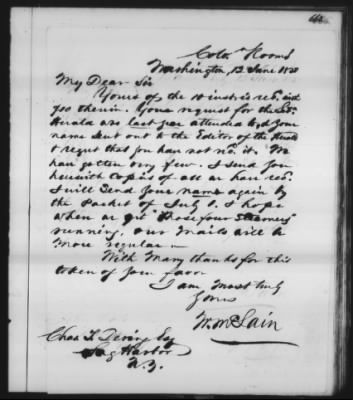 Colo. Rooms
Washington, 12 June 1850
My Dear Sir
Yours of the 10 inst is recd. and
$00 therein. Your request for the Lib.
Herald was last year attended to, & your
name sent out to the Editor of the Herald
& regret that you have not recd. it. We
have gotten very few. I send you
herewith copies of all we have recd.
I will send your name again by
the Packet of July 1. I hope
when we get "those four steamers"
running, our mails will be
more regular —
With many thanks for this
token of your favor
I am most truly
Yours
W. McLain
Chas. T. Dering Esq
Sag Harbor
N.Y.